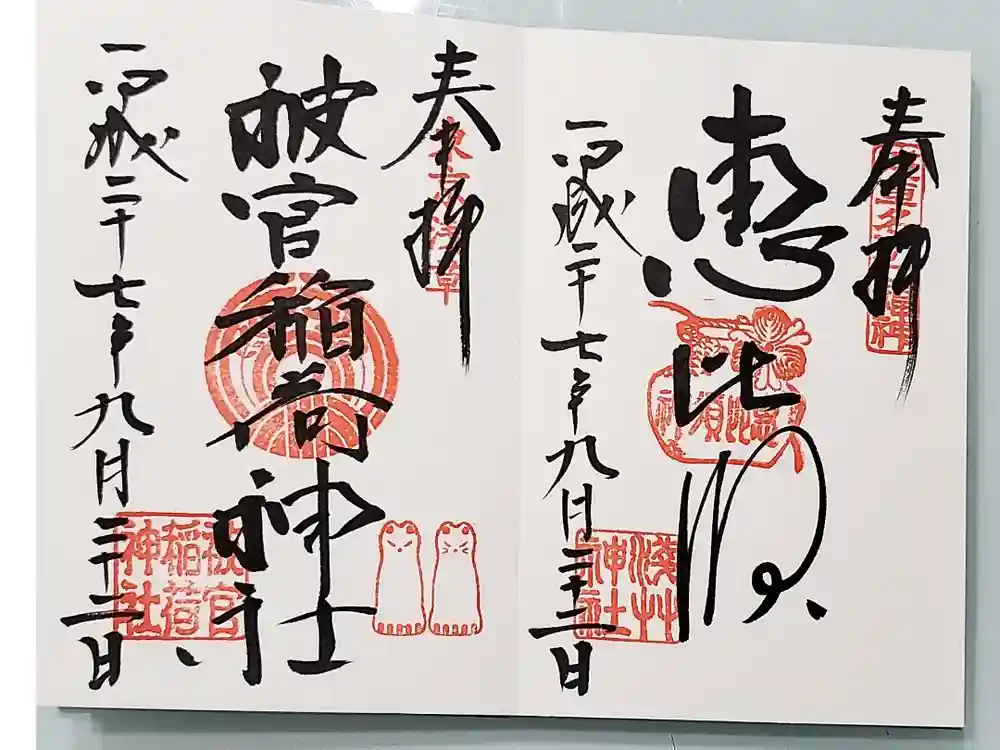 奉拝
恵比須
平成二十七年九月二十二日
浅草神社
恵比須神
奉拝
東京浅草
被官稲荷神社
平成二十七年九月二十二日
被官稲荷神社